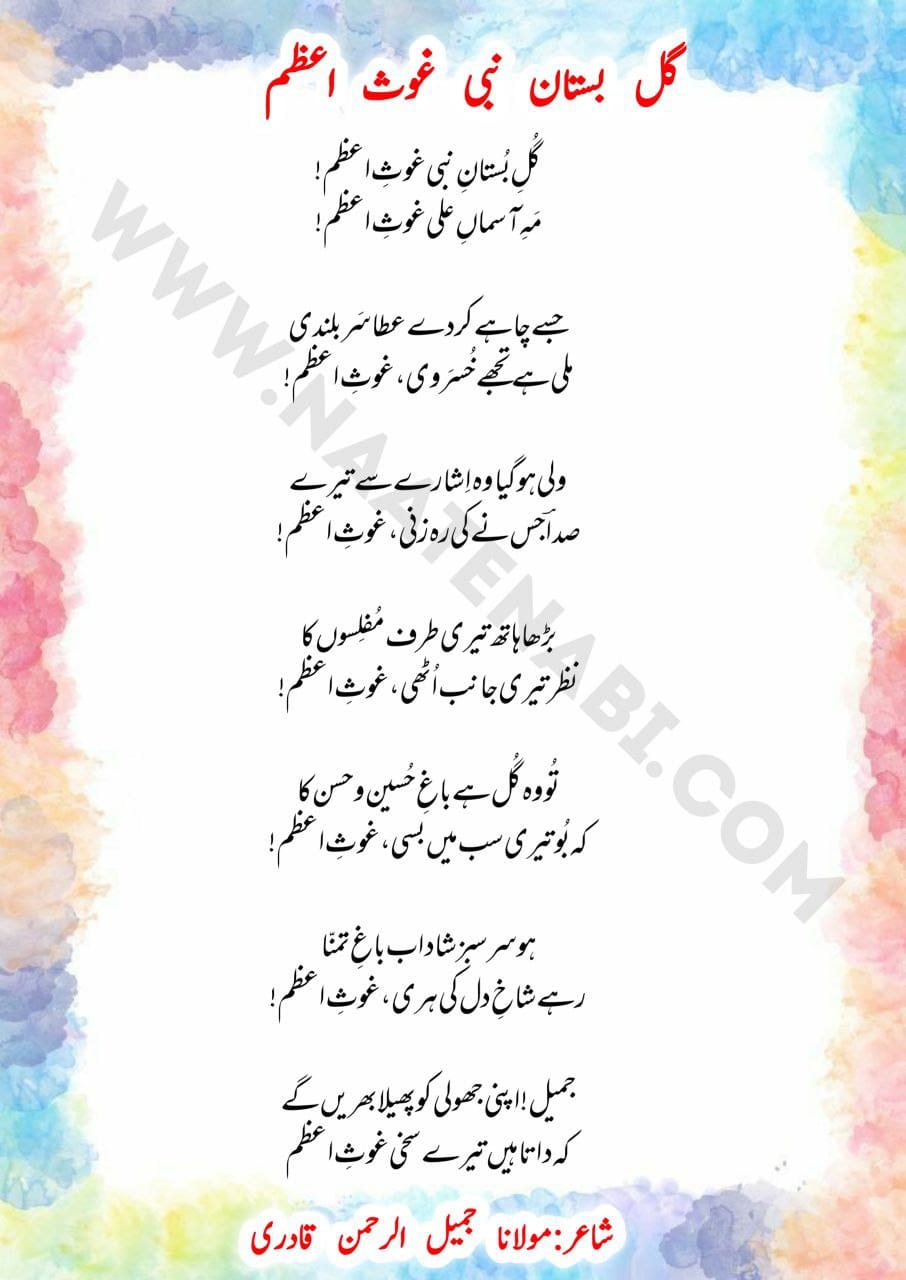 گل بستان نبی غوث اعظم
گُلِ بُستانِ نبی غوثِ اعظم!
مَہِ آسماںِ علی غوثِ اعظم!
جسے چاہے کردے عطا سَر بلندی
ملی ہے تجھے خُسرَوی، غوثِ اعظم!
ولی ہوگیا وہ اِشارے سے تیرے
صداؔ جس نے کی رہ زنی، غوثِ اعظم!
بڑھا ہاتھ تیری طرف مُفلِسوں کا
نظر تیری جانب اُٹھی، غوثِ اعظم!
تُو وہ گُل ہے باغِ حُسین و حسن کا
کہ بُو تیری سب میں بسی، غوثِ اعظم!
ہو سر سبز شاداب باغِ تمنّا
رہے شاخِ دل کی ہری، غوثِ اعظم!
جمیل! اپنی جھولی کو پھیلا بھریں گے
کہ داتا ہیں تیرے سخی غوثِ اعظم
شاعر: مولانا جمیل الرحمن قادری
WWW.NAATENABI.COM